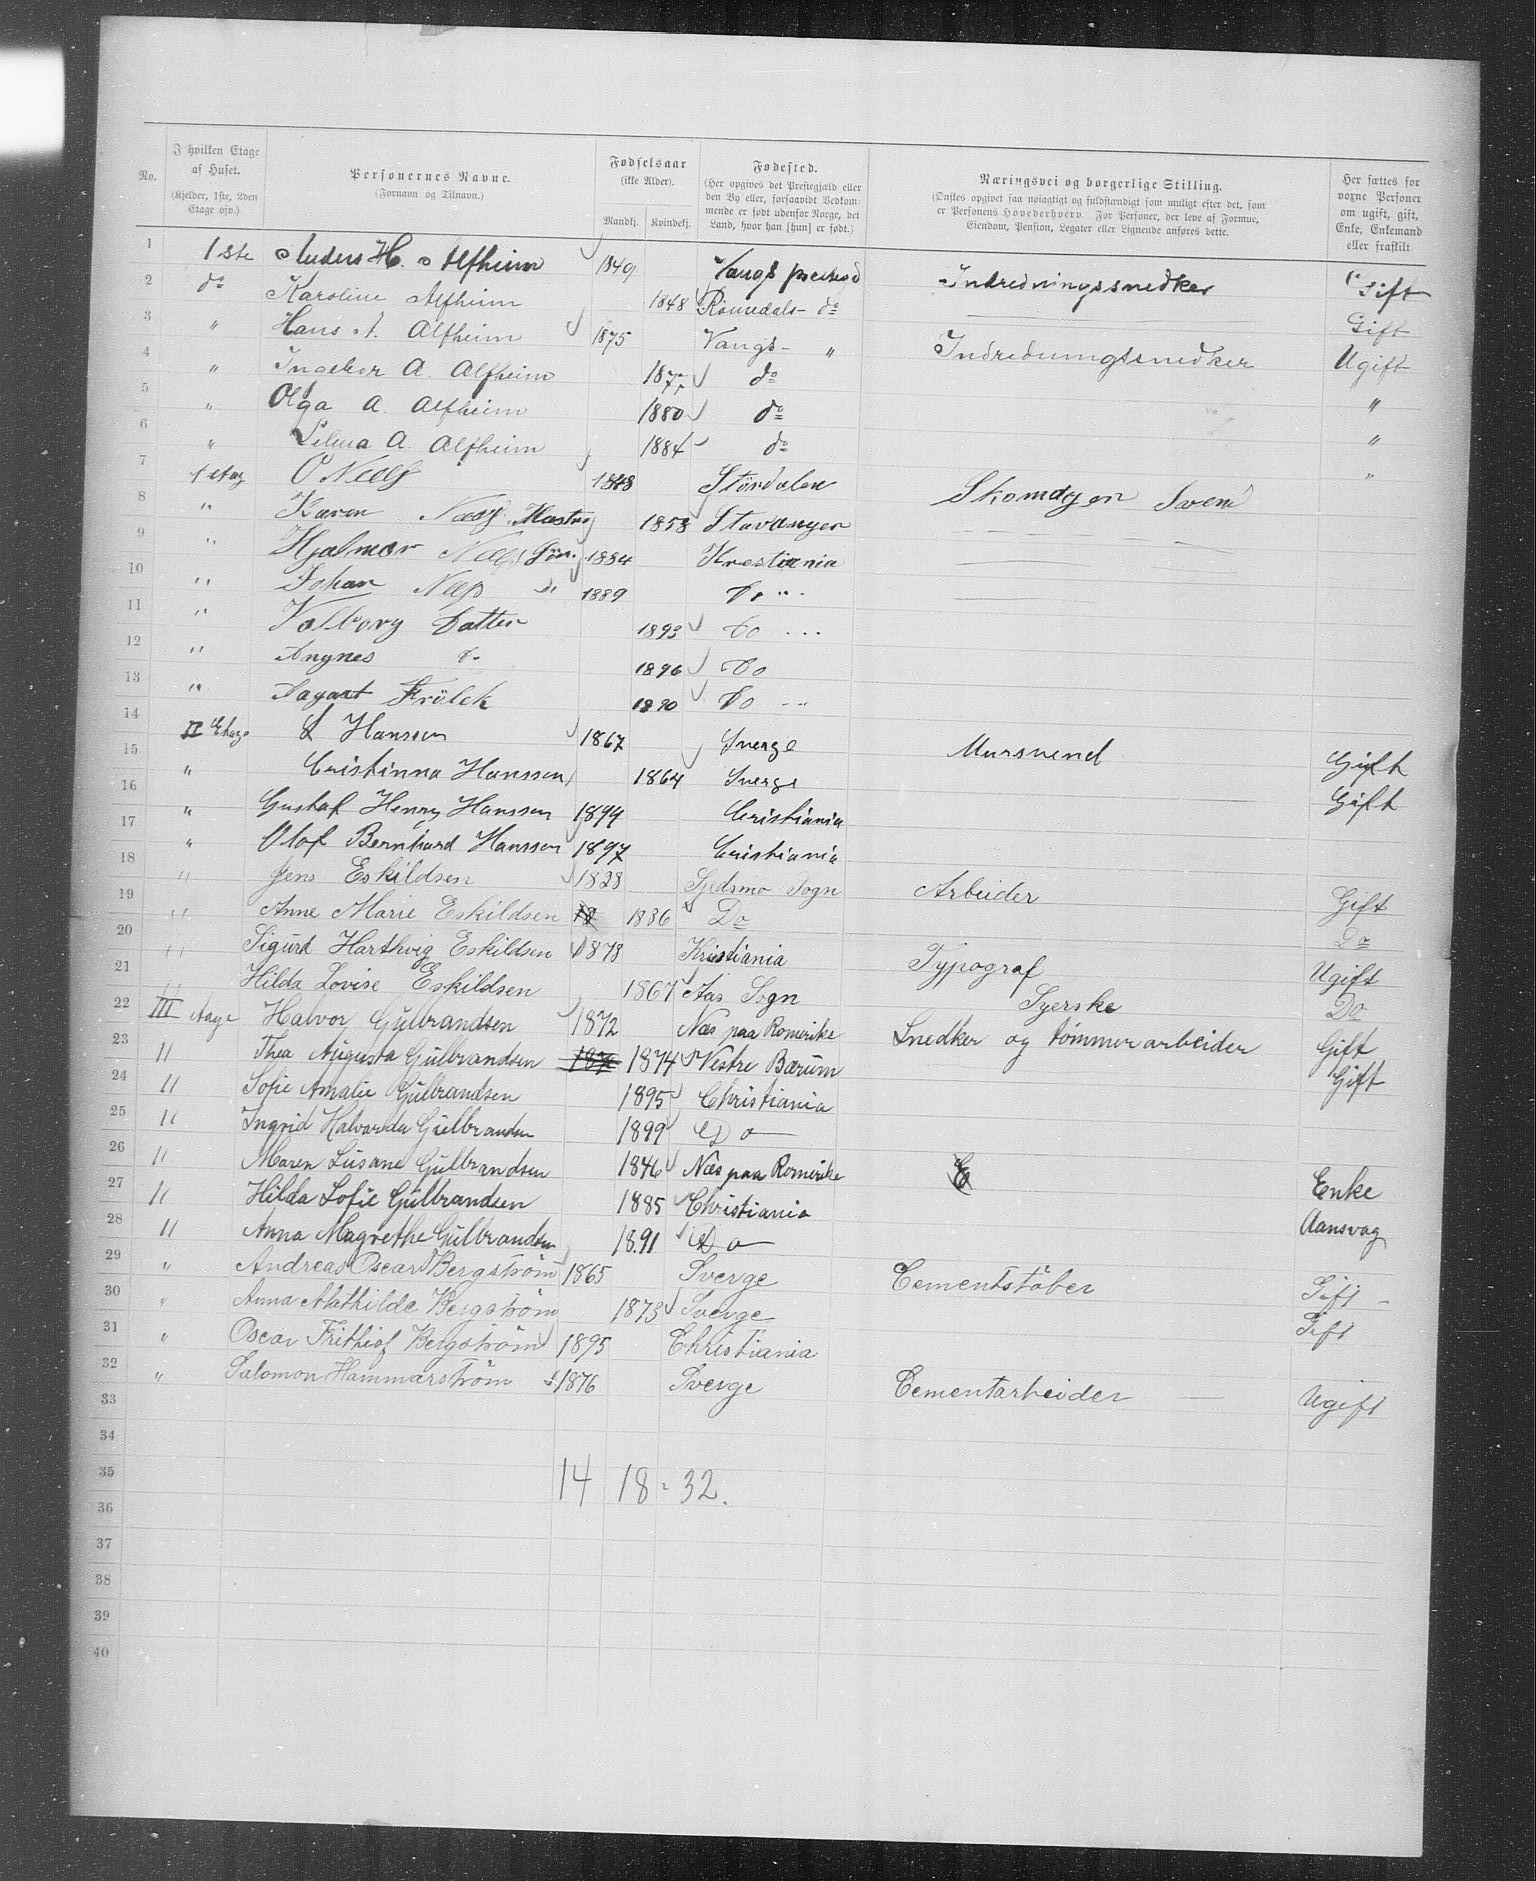 No. | I hvilken Etage af Huset. (Kjelder, 1ste, 2den Etage osv.) | Personernes Navne. (Fornavn og Tilnavn.) | Fødselsaar (ikke Alder). Mandkj. Kvindekj. | Fødested. (Her opgives det Prestegjæld eller den By eller, forsaavidt Vedkommende er født udenfor Norge, det Land, hvor han [hun] er født.) | Næringsvei og borgerlige Stilling. (Ønskes opgivet saa nøiagtigt og fuldstændigt som muligt efter det, som er Personens Hovederhverv. For Personer, der leve af Formue, Eiendom, Pension, Legater eller Lignende anføres dette.) | Her sættes for voxne Personer om ugift, gift, Enke, Enkemand eller fraskilt
1 1ste Anders H. Alfheim 1849 Vangs Indredningssnedker Gift
2 do Karoline Alfheim 1848 Romedals do Gift
3 " Hans A. Alfheim 1875 Vangs - " Indredningssnedker Ugift
4 " Ingebor A. Alfheim 187 do "
5 " Olga A. Alfheim 1880 do "
6 " Selma A. Alfheim 1884 do "
7 1 Etag O Næss 1848 Stördalen Skomager Svend
8 " Karen Næss Hustru 1858 Stavanger
9 " Hjalmar Næss Sön 1884 Krestiania
10 " Johan Næss do 1889 Do "
11 " Valborg Datter 1893 Do
12 " Angnes do 1896 Do
13 " Dagart Frölck 1890 Do
14 II Etage L Hanssen 1867 Sverge Mursvend Gift
15 " Cristinna Hanssen 1864 Sverge Gift
16 " Gustaf Henry Hanssen 1894 Cristiania
17 " Olof Bernhard Hanssen 1897 Cristiania
18 " Jens Eskildsen 1828 Sjedsmo Sogn Arbeider Gift
19 " Anne Marie Eskildsen 1836 Do Do
20 " Sigurd Harthvig Eskildsen 1878 Kristiania Typograf Ugift
21 " Hilda Lovise Eskildsen 1867 Aas Sogn Syerske Do
22 III Aage Halvor Gulbrandsen 1872 Næs paa Romerike Snedker og tömmerarbeider Gift
23 " Thea Augusta Gulbrandsen 1874 Vestre Bærum Gift
24 " Sofie Amalie Gulbrandsen 1895 Christiania
25 " Ingrid Halvarda Gulbrandsen 1899 Do
26 " Maren Susane Gulbrandsen 1846 Næs paa Romerike E Enke
27 " Hilda Sofie Gulbrandsen 1885 Christiania Aansvag
28 " Anna Magrethe Gulbrandsen 1891 Do
29 " Andreas Oscar Bergström 1865 Sverge Cementstöber Gift
30 " Anna Mathilde Bergström 1873 Sverge Gift
31 " Oscar Frithiof Bergström 1895 Christiania
32 " Salomon Hammarström 1876 Sverge Cementarbeider Ugift
33
34
35 14 18 = 32.
36
37
38
39
40